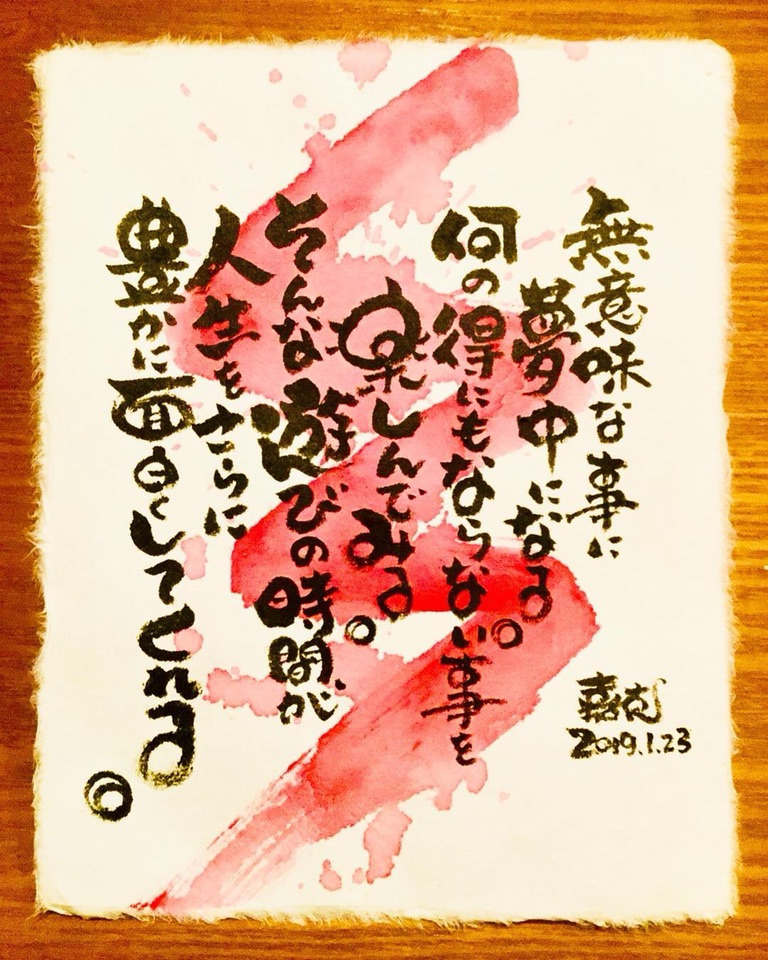 無意味な事に
夢中になる。
何の得にもならない事を
楽しんでみる。
そんな遊びの時間が
人生をさらに
豊かに面白くしてくれる。
2019.1.23